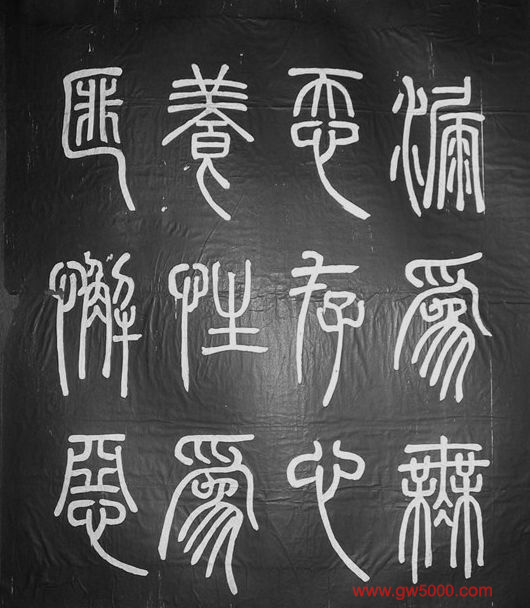 漏爲無
忝存心
養性爲
匪懈惡
www.gw5000.com